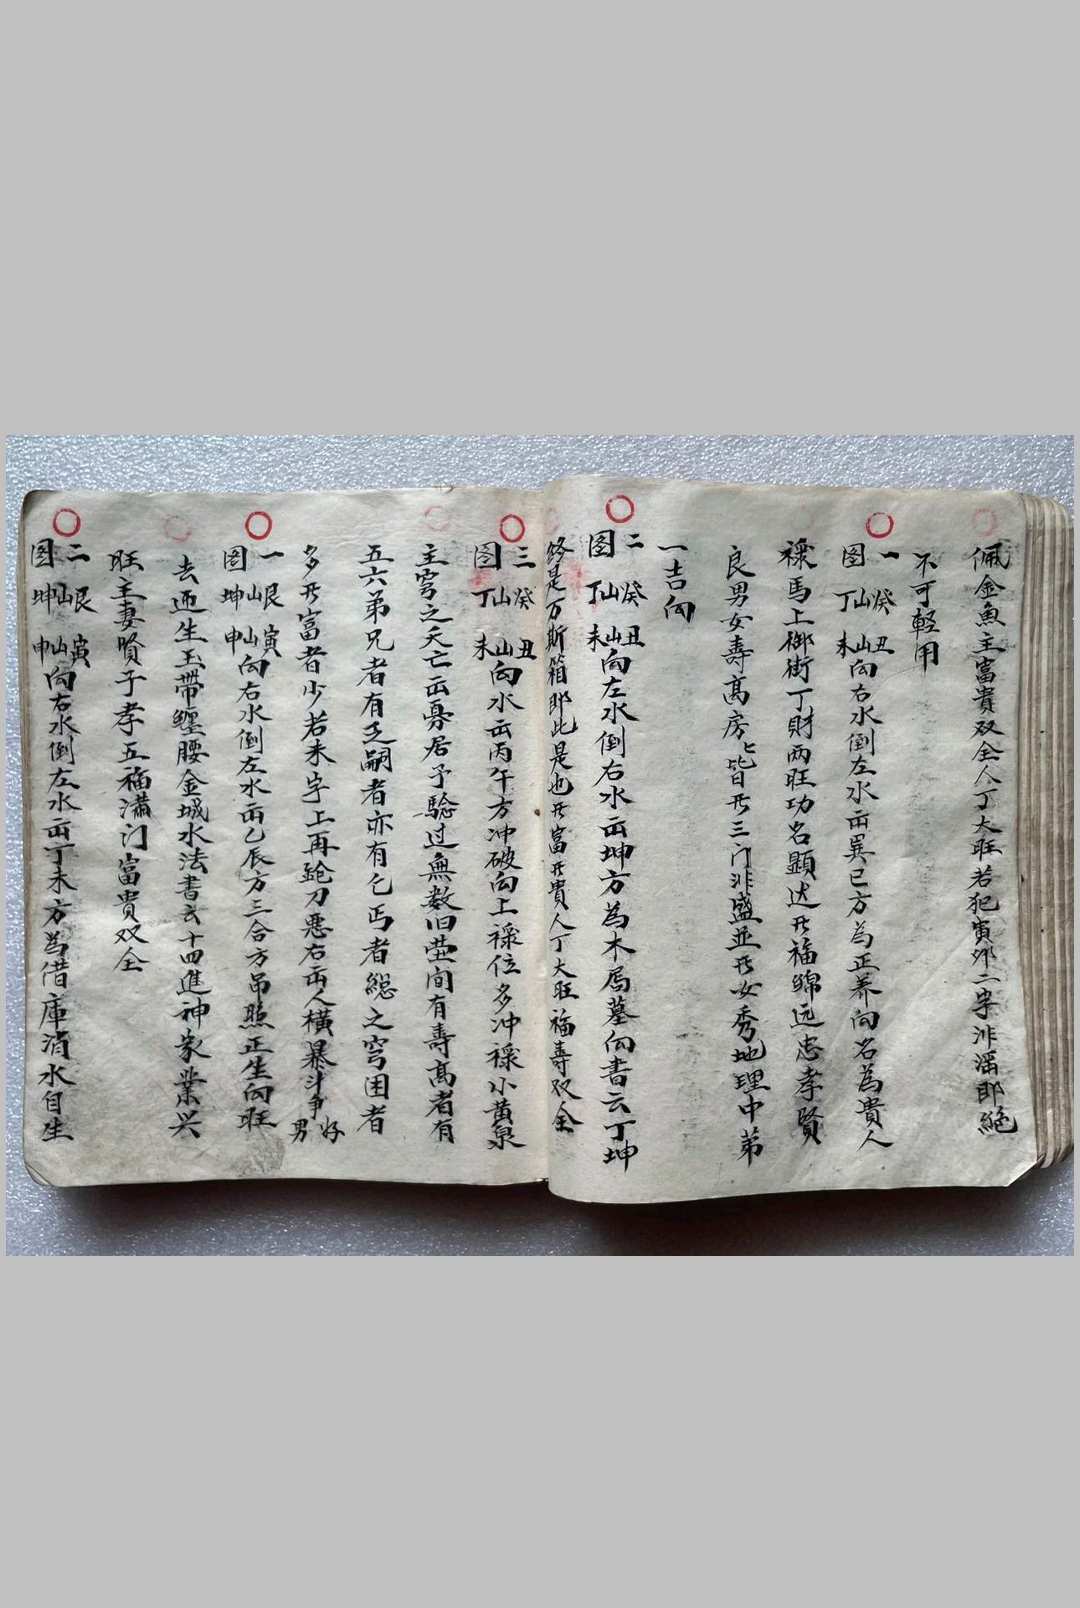 佩金魚主富貴双全人丁大旺若犯寅邜二字非滛即絶
不可軽用
一图 癸山丁 丑山未向右水倒左水出巽巳方為正养向名為貴人
禄馬上御街丁財両旺功名顕达發福綿远忠孝賢
良男女壽高房匕皆發三门非盛並發女秀地理中苐
一吉向
二图 癸山丁 丑山未向左水倒右水出坤方為木局墓向書云丁坤
终是万斯箱即此是也發富發貴人丁大旺福壽双全
三图 癸山丁 丑山未向水出丙午方冲破向上禄位多冲禄小黄泉
主穹之夭亡出寡居予驗过無数旧茔间有壽高者有
五六弟兄者有乏嗣者亦有乞丐者総之穹困者
多發富者少若未字上再 刀恶石出人横暴斗争好男
一图 艮山坤 寅山申向右水倒左水出乙辰方三合方吊照正生向旺
去迎生玉帶纏腰金城水法書云十四進神家業兴
旺主妻賢子孝五福满门富貴双全
二图 艮山坤 寅山申向右水倒左水出丁未方為借庫消水自生